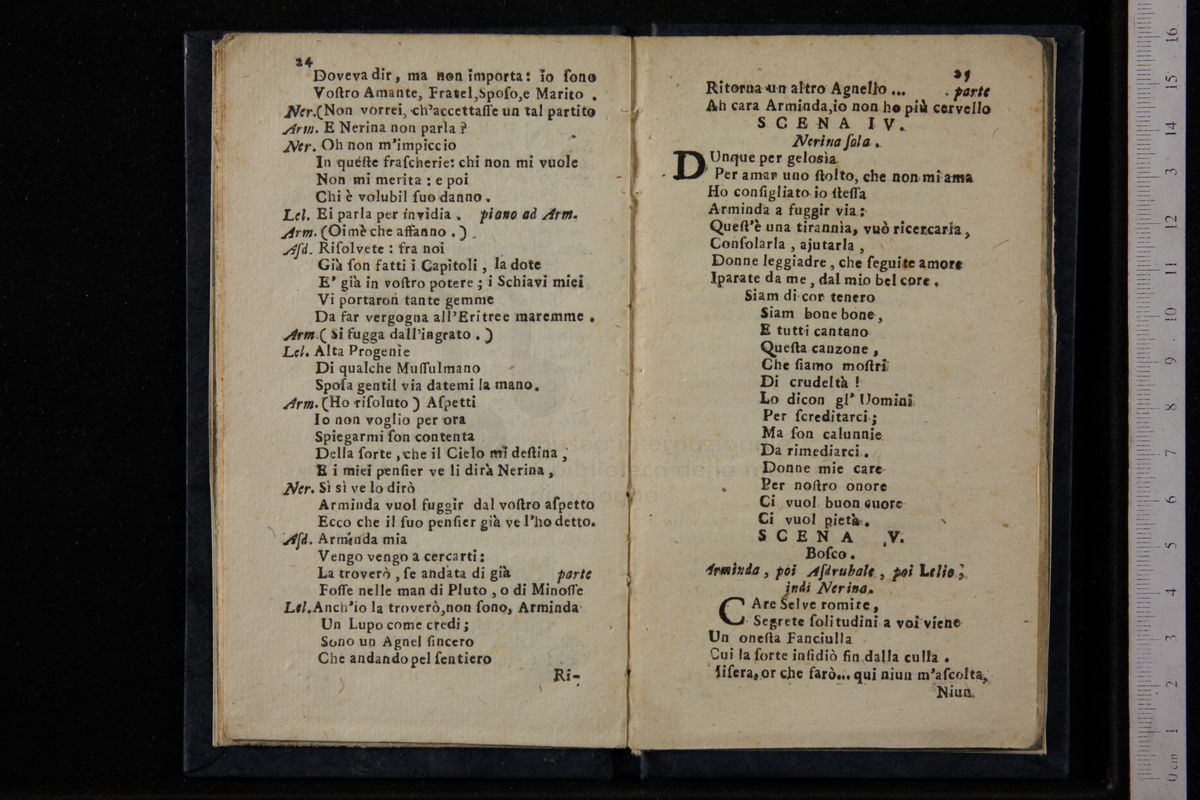 24
Doveva dir, ma non importa: io ſono
Voſtro Amante, Fratel, Spoſo, e Marito .
Ner. (Non vorrei, ch'accettaſſe un tal partito
Arm. E Nerina non parla ?
Ner. Oh non m'impiccio
In queſte fraſcherie: chi non mi vuole
Non mi merita : e poi
Chi è volubil ſuo danno .
Lel. Ei parla per invidia . piano ad Arm.
Arm. (Oimè che affanno . )
Aſd. Riſolvete : fra noi
Già ſon fatti i Capitoli , la dote
E' già in voſtro potere ; i Schiavi miei
Vi portaron tante gemme
Da far vergogna all'Eritree maremme .
Arm. ( Si fugga dall'ingrato . )
Lel. Alta Progenie
Di qualche Muſſulmano
Spoſa gentil via datemi la mano.
Arm. (Ho riſoluto ) Aſpetti
Io non voglio per ora
Spiegarmi ſon contenta
Della ſorte , che il Cielo mi deſtina ;
E i miei penſier ve li dirà Nerina ,
Ner. Sì sì ve lo dirò
Arminda vuol fuggir dal voſtro aſpetto
Ecco che il ſuo penſier già ve l'ho detto.
Aſd. Arminda mia
Vengo vengo a cercarti :
La troverò , ſe andata di già parte
Foſſe nelle man di Pluto , o di Minoſſe
Lel. Anch'io la troverò, non ſono, Arminda
Un Lupo come credi ;
Sono un Agnel ſincero
Che andando pel ſentiero
Ri-
25
Ritorna un altro Agnello ... parte
Ah cara Arminda, io non ho più cervello
SCENA IV.
Nerina ſola .
DUnque per gelosia
Per amar uno ſtolto, che non mi ama
Ho conſigliato io ſteſſa
Arminda a fuggir via :
Queſt'è una tirannia, vuò ricercarla ,
Conſolarla , ajutarla ,
Donne leggiadre , che ſeguite amore
Iparate da me , dal mio bel core .
Siam di cor tenero
Siam bone bone ,
E tutti cantano
Queſta canzone ,
Che ſiamo moſtri
Di crudeltà !
Lo dicon gl' Uomini
Per ſcreditarci ;
Ma ſon calunnie
Da rimediarci .
Donne mie care
Per noſtro onore
Ci vuol buon cuore
Ci vuol pietà .
SCENA V.
Boſco .
Arminda , poi Aſdrubale , poi Lelio ;
indi Nerina.
CAre Selve romite ,
Segrete ſolitudini a voi viene
Un oneſta Fanciulla
Cui la ſorte inſidiò fin dalla culla .
Miſera, or che farò... qui niun m'aſcolta,
Niun
0 cm 1 2 3 4 5 6 7 8 9 10 11 12 13 14 15 16